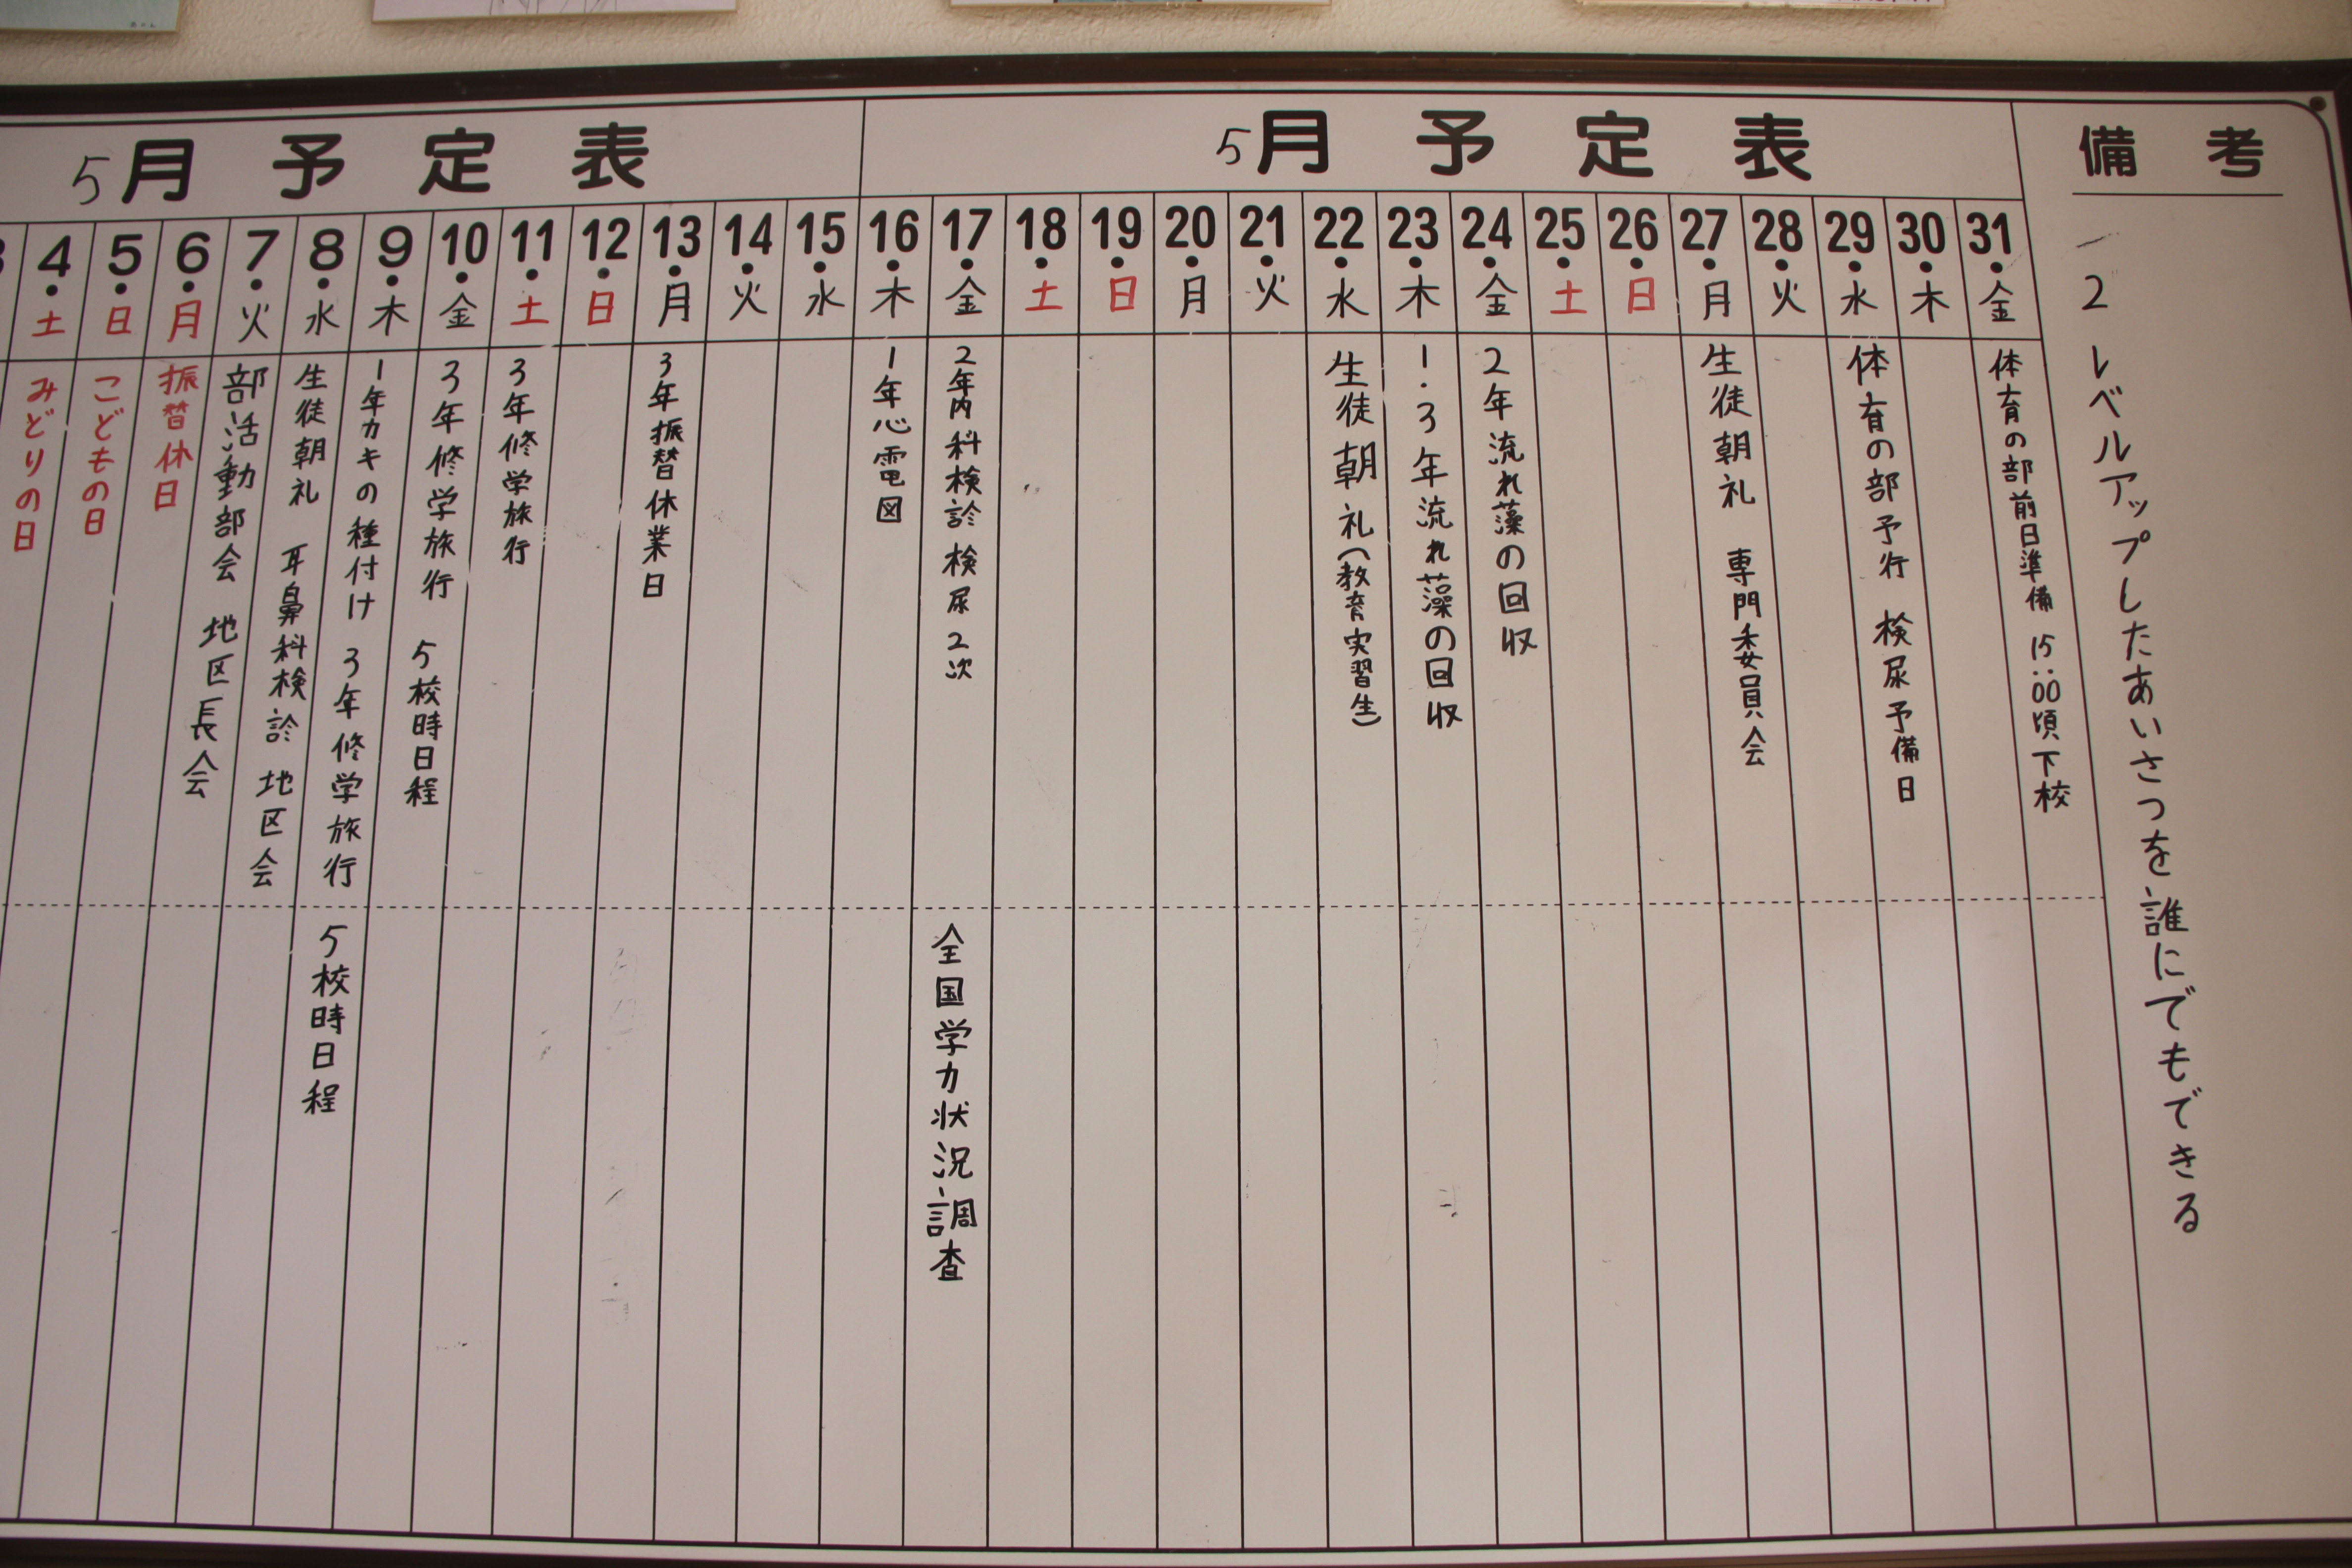 5月予定表
5月予定表
備考
4・土
みどりの日
5・日
こどもの日
6・月
振替休日
7・火
部活動部会 地区長会
8・水
生徒朝礼 耳鼻科検診 地区会
9・木
1年カキの種付け 3年修学旅行 5校時日程
10・金
3年修学旅行 5校時日程
11・土
3年修学旅行
12・日
13・月
3年振替休業日
14・火
15・水
16・木
1年心電図
17・金
2年内科検診 検尿2次 全国学力状況調査
18・土
19・日
20・月
21・火
22・水
生徒朝礼(教育実習生)
23・木
1・3年流れ藻の回収
24・金
2年流れ藻の回収
25・土
26・日
27・月
生徒朝礼 専門委員会
28・火
29・水
体育の部予行 検尿予備日
30・木
31・金
体育の部前日準備 15:00頃下校
一2レベルアップしたあいさつを誰にでもできる